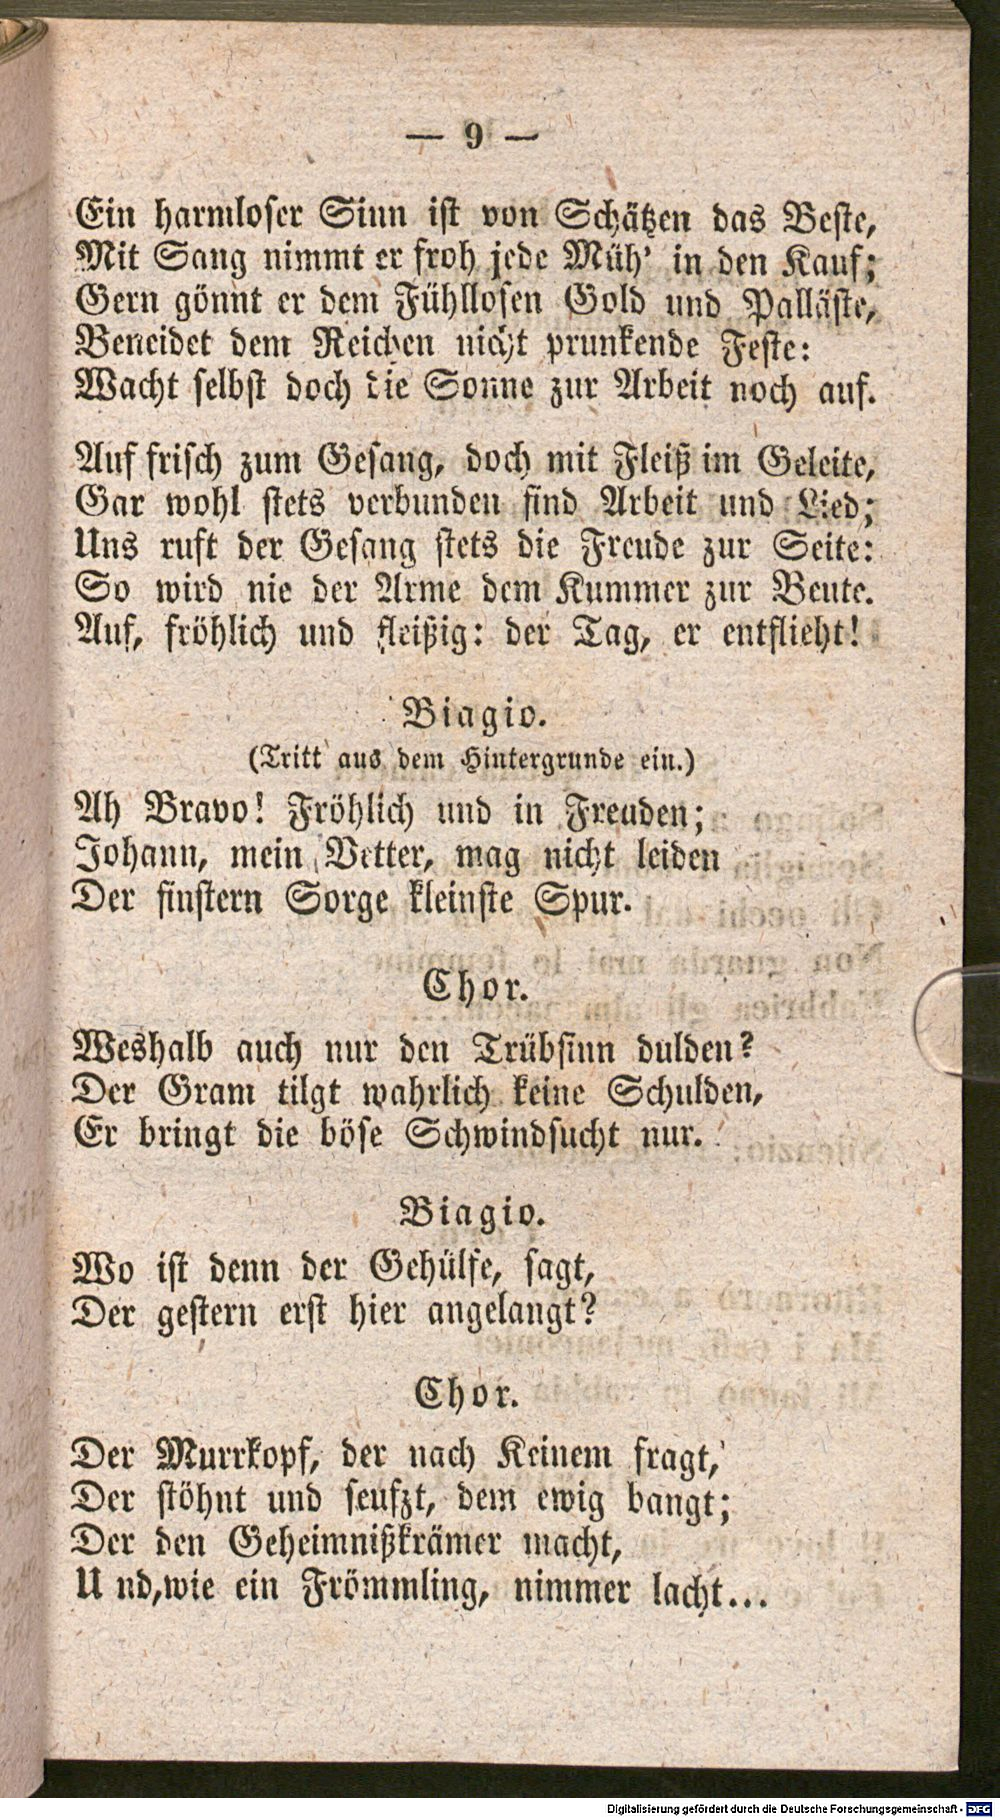 — 9 —
Ein harmloser Sinn ist von Schätzen das Beste,
Mit Sang nimmt er froh jede Müh' in den Kauf;
Gern gönnt er dem Fühllosen Gold und Palläste,
Beneidet dem Reichen nicht prunkende Feste:
Wacht selbst doch die Sonne zur Arbeit noch auf.
Auf frisch zum Gesang, doch mit Fleiß im Geleite,
Gar wohl stets verbunden sind Arbeit und Lied;
Uns ruft der Gesang stets die Freude zur Seite:
So wird nie der Arme dem Kummer zur Beute.
Auf, fröhlich und fleißig: der Tag, er entflieht!
Biagio.
(Tritt aus dem Hintergrunde ein.)
Ah Bravo! Fröhlich und in Freuden;
Johann, mein Vetter, mag nicht leiden
Der finstern Sorge kleinste Spur.
Chor.
Weshalb auch nur den Trübsinn dulden?
Der Gram tilgt wahrlich keine Schulden,
Er bringt die böse Schwindsucht nur.
Biagio.
Wo ist denn der Gehülfe, sagt,
Der gestern erst hier angelangt?
Chor.
Der Murrkopf, der nach Keinem fragt,
Der stöhnt und seufzt, dem ewig bangt;
Der den Geheimnißkrämer macht,
U nd,wie ein Frömmling, nimmer lacht...
Digitalisierung gefördert durch die Deutsche Forschungsgemeinschaft - DFG